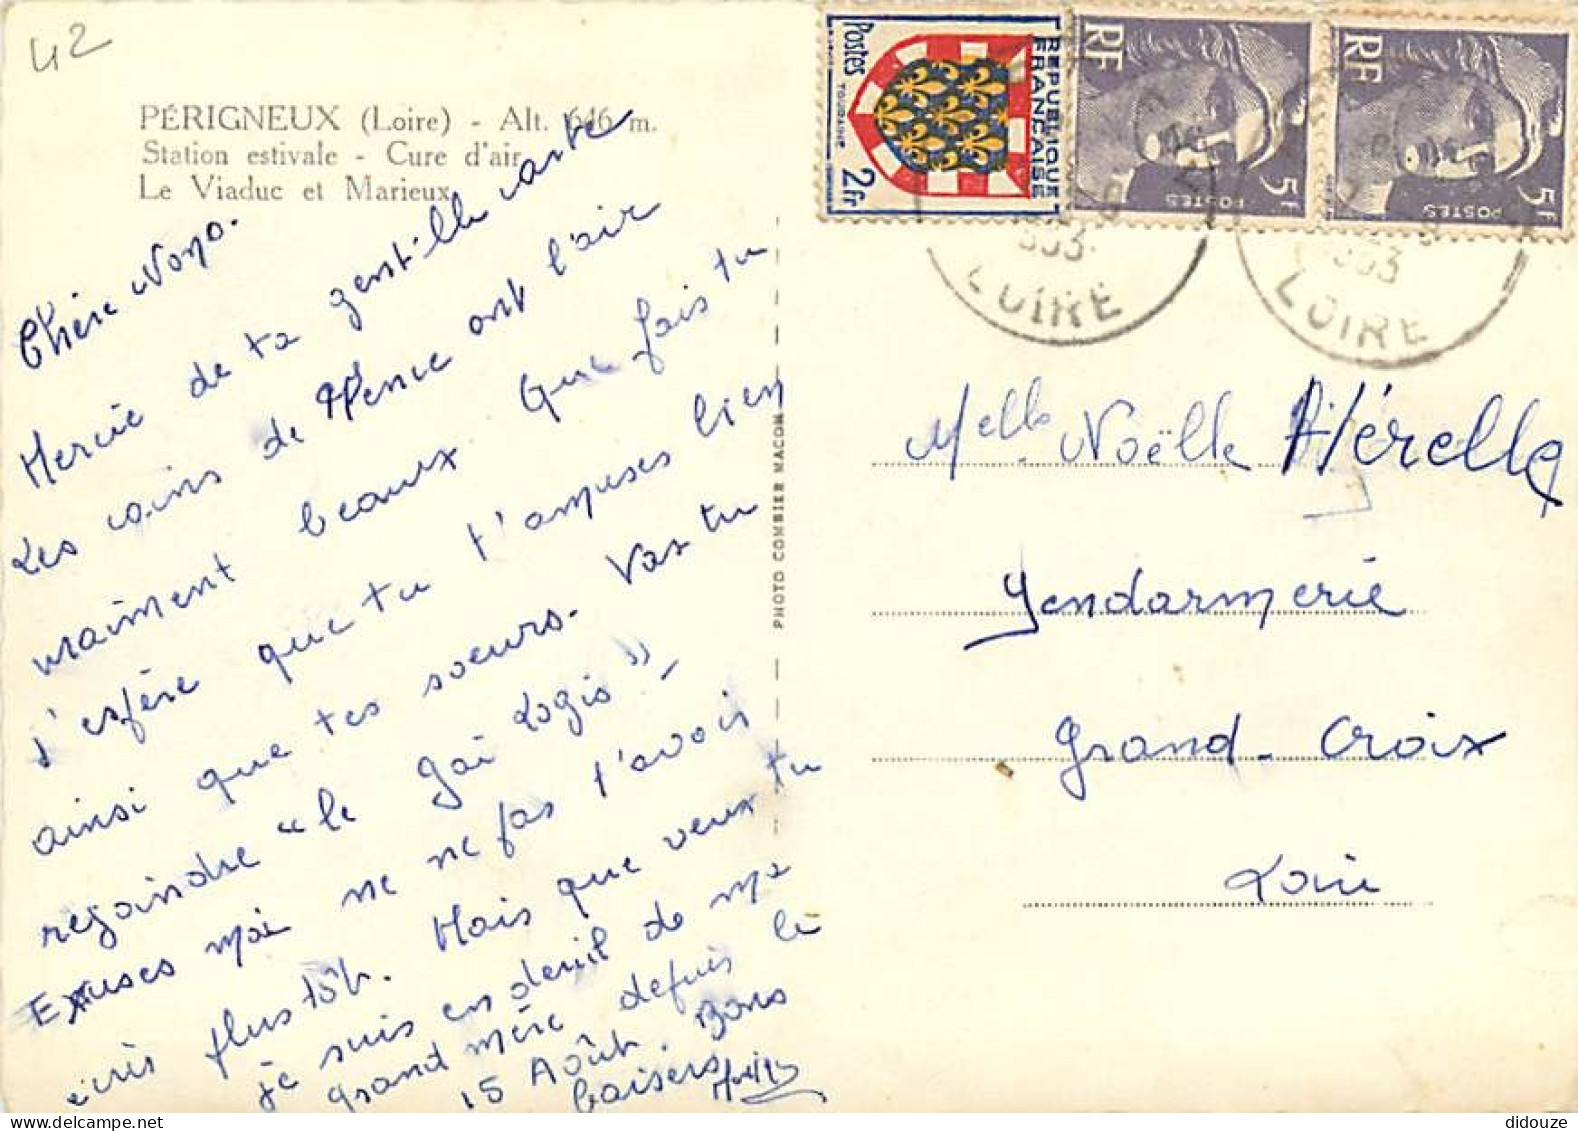 42
PÉRIGNEUX (Loire) - Alt. 646 m.
Station estivale - Cure d'air
Le Viaduc et Marieux
Chère Nono.
Mercie de ta gentille carte
Les coins de Vence ont l'air
vraiment beaux. Que fais tu
j'espère que tu t'amuses bien
ainsi que tes soeurs. Vas tu
rejoindre "le gai Logis"
Excuses moi ne ne pas t'avoir
écris plus tôt. Mais que veux tu
je suis en deuil de ma
grand mère depuis le
15 Août. Bons
baisers
PHOTO COMBIER MACON
REPUBLIQUE FRANÇAISE
Postes
TOURAINE
2fr
RF
5F
POSTES
RF
5F
POSTES
LOIRE
LOIRE
Melle Noëlle Hérelle
Gendarmerie
Grand-Croix
Loire
didouze